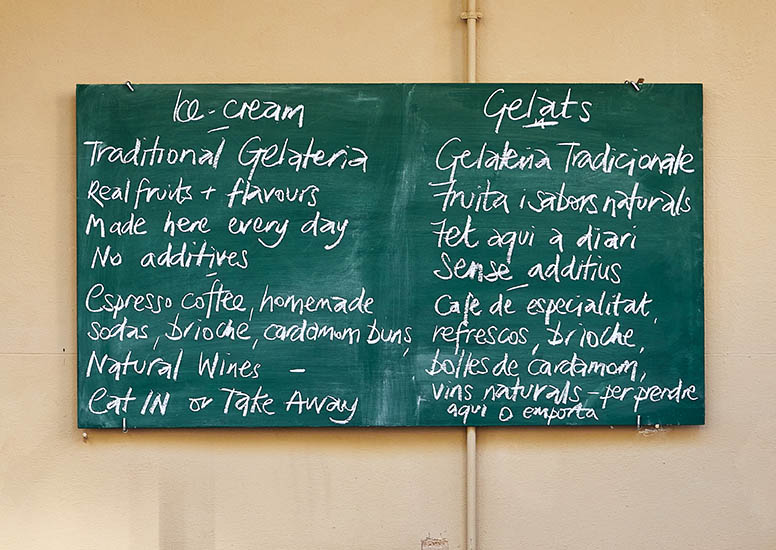 Ice-cream
Traditional Gelateria
Real fruits + flavours
Made here every day
No additives
Espresso coffee, homemade
sodas, brioche, cardamom buns,
Natural Wines –
Eat IN or Take Away
Gelats
Gelateria Tradicionale
Fruita i sabors naturals
Fet aqui a diari
Sense additius
Cafe de especialitat,
refrescos, brioche,
bolles de cardamom,
vins naturals – per prendre
aqui o emporta